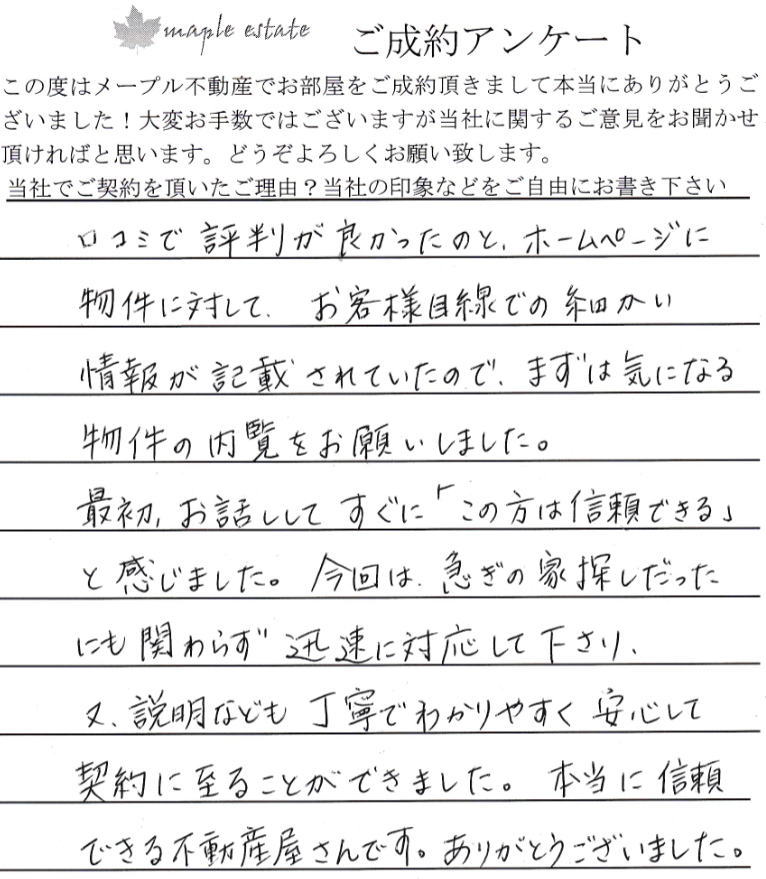 maple estate ご成約アンケート
この度はメープル不動産でお部屋をご成約頂きまして本当にありがとうご
ざいました！大変お手数ではございますが当社に関するご意見をお聞かせ
頂ければと思います。どうぞよろしくお願い致します。
当社でご契約を頂いたご理由？当社の印象などをご自由にお書き下さい
口コミで評判が良かったのと、ホームページに
物件に対して、お客様目線での細かい
情報が記載されていたので、まずは気になる
物件の内覧をお願いしました。
最初、お話ししてすぐに「この方は信頼できる」
と感じました。今回は、急ぎの家探しだった
にも関わらず迅速に対応して下さり、
又、説明なども丁寧でわかりやすく安心して
契約に至ることができました。本当に信頼
できる不動産屋さんです。ありがとうございました。